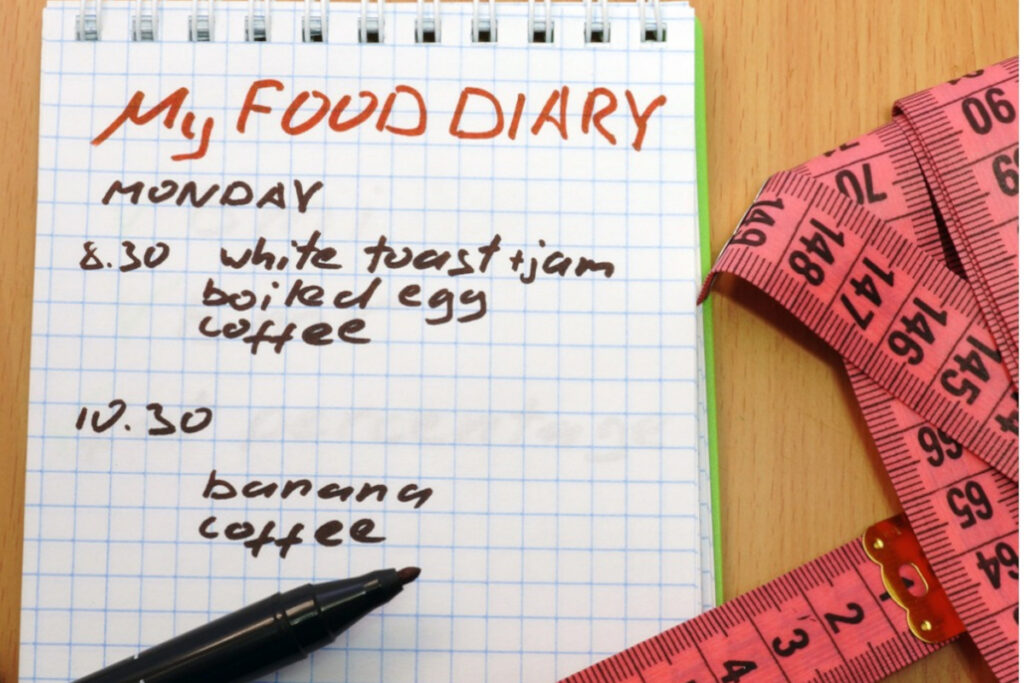 My FOOD DIARY
MONDAY
8.30 white toast + jam
boiled egg
coffee
10.30
banana
coffee
90
70
149
148
147
146
145
66
65
64
2
3
4